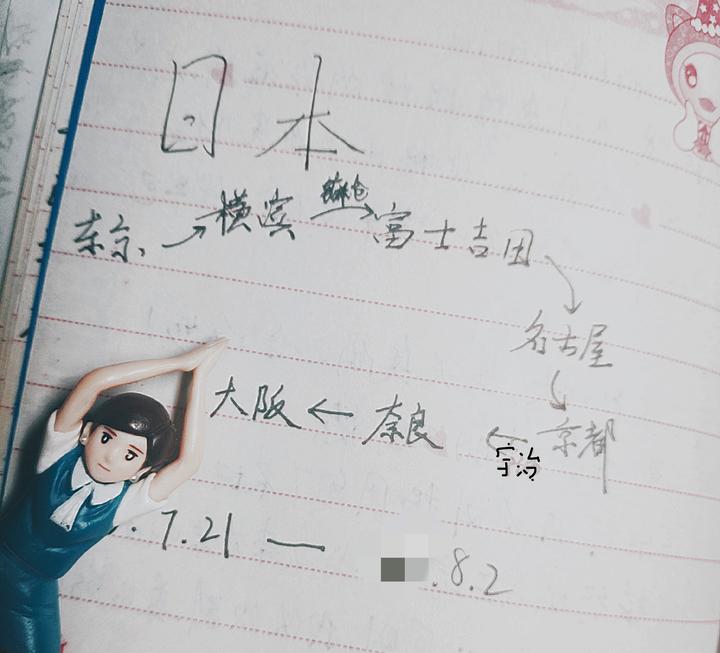 日本
东京、→横滨 镰仓→ 富士吉田
↓
名古屋
↓
大阪 ← 奈良 ← 宇治 京都
.7.21 — .8.2